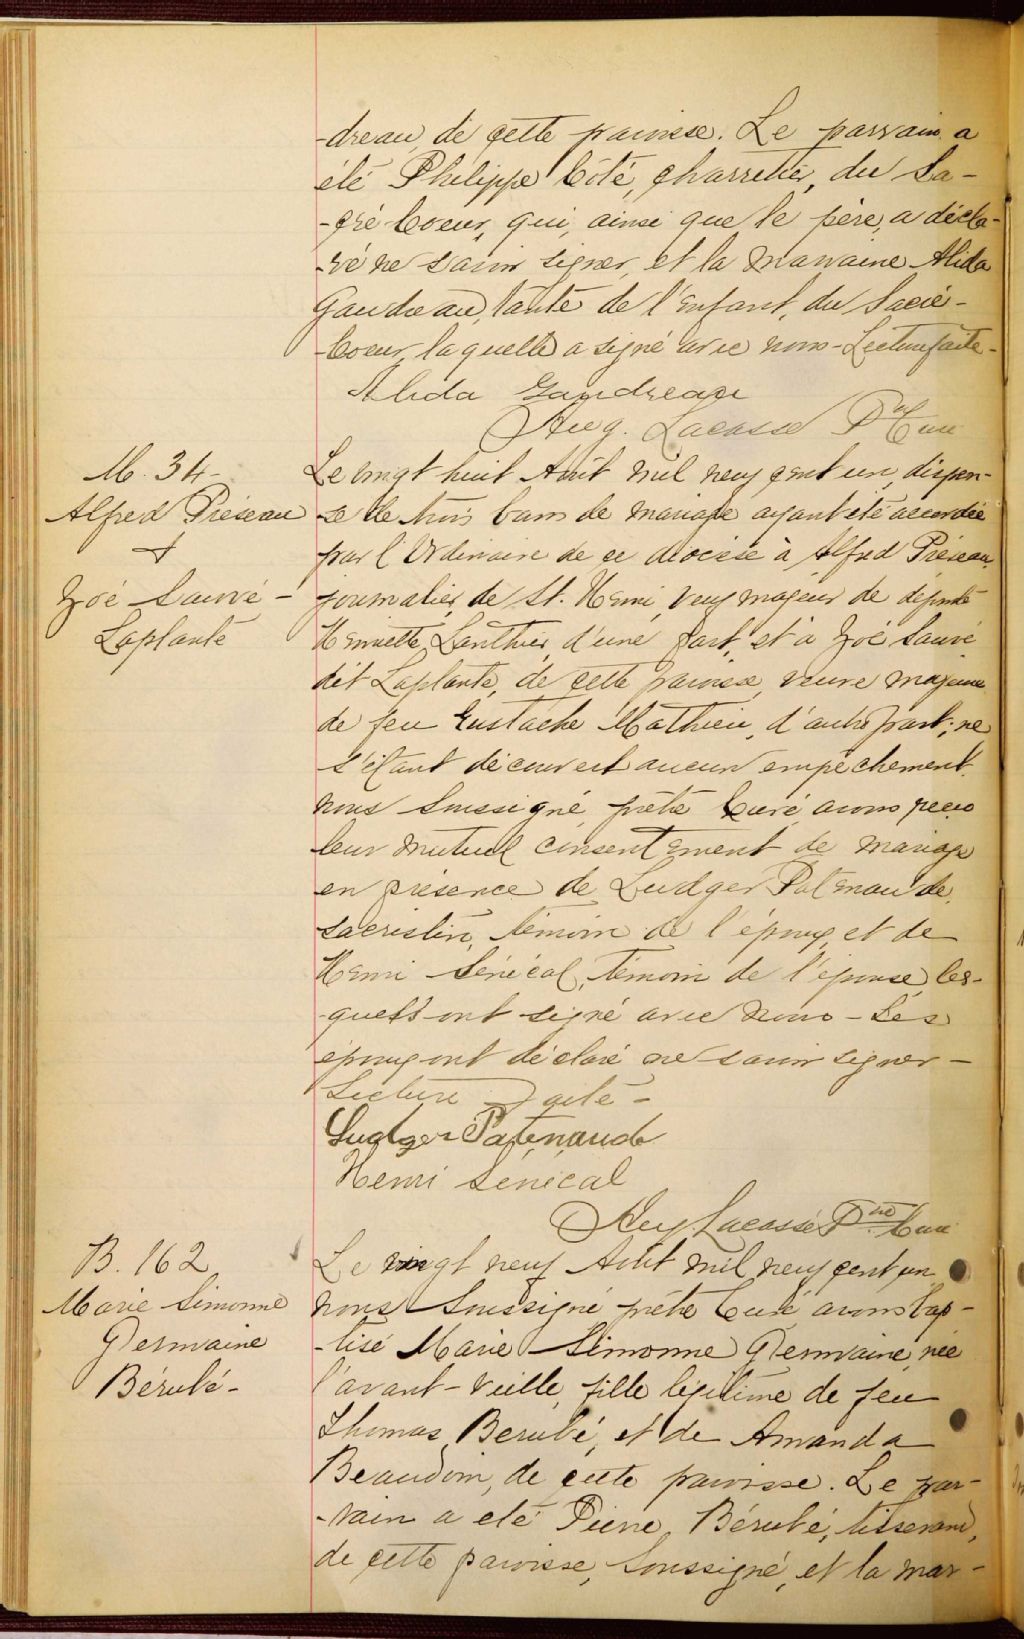 -dreau, de cette paroisse. Le parrain a
été Philippe Côté, charretier, du Sa-
-cré Coeur, qui, ainsi que le père, a décla-
-ré ne savoir signer, et la marraine Alida
Gaudreau, tante de l'enfant, du Sacré-
-Coeur, laquelle a signé avec nous - Lecture faite -
Alida Gaudreau
Aug. Lacasse Ptre Curé
M. 34-
Alfred Préseau
+
Zoé Sauvé -
Laplante
Le vingt huit Août mil neuf cent un, dispen-
-se de trois bans de mariage ayant été accordée
par l'Ordinaire de ce diocèse à Alfred Préseau,
journalier, de St. Henri, veuf majeur de défunte
Henriette Lanthier, d'une part, et à Zoé Sauvé
dit Laplante, de cette paroisse, veuve majeure
de feu Eustache Mathieu, d'autre part; ne
s'étant découvert aucun empêchement,
nous Soussigné prêtre Curé avons reçu
leur mutuel consentement de mariage
en présence de Ludger Patenaude,
sacristin, témoin de l'époux, et de
Henri Sénécal, témoin de l'épouse, les-
-quels ont signé avec nous - Les
époux ont déclaré ne savoir signer -
Lecture faite -
Ludger Patenaude
Henri Sénécal
Aug Lacasse Ptre Curé
B. 162
Marie Simonne
Germaine
Bérubé -
Le vingt neuf Août mil neuf cent un
nous Soussigné prêtre Curé avons bap-
-tisé Marie Simonne Germaine, née
l'avant-veille, fille légitime de feu
Thomas Bérubé, et de Amanda
Beaudoin, de cette paroisse. Le par-
-rain a été Pierre Bérubé, tisserand,
de cette paroisse, Soussigné, et la mar-